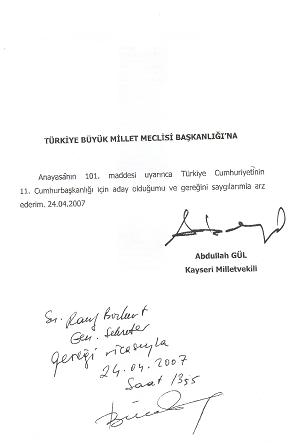 TÜRKİYE BÜYÜK MİLLET MECLİSİ BAŞKANLIĞI'NA
Anayasânın 101. maddesi uyarınca Türkiye Cumhuriyetînin
11. Cumhurbaşkanlığı için aday olduğumu ve gereğini saygılarımla arz
ederim. 24.04.2007
Abdullah GÜL
Kayseri Milletvekili
Sn. Rauf Bozkurt
Gen. Sekreter
gereği ricasıyla
24.04.2007
Saat 1355